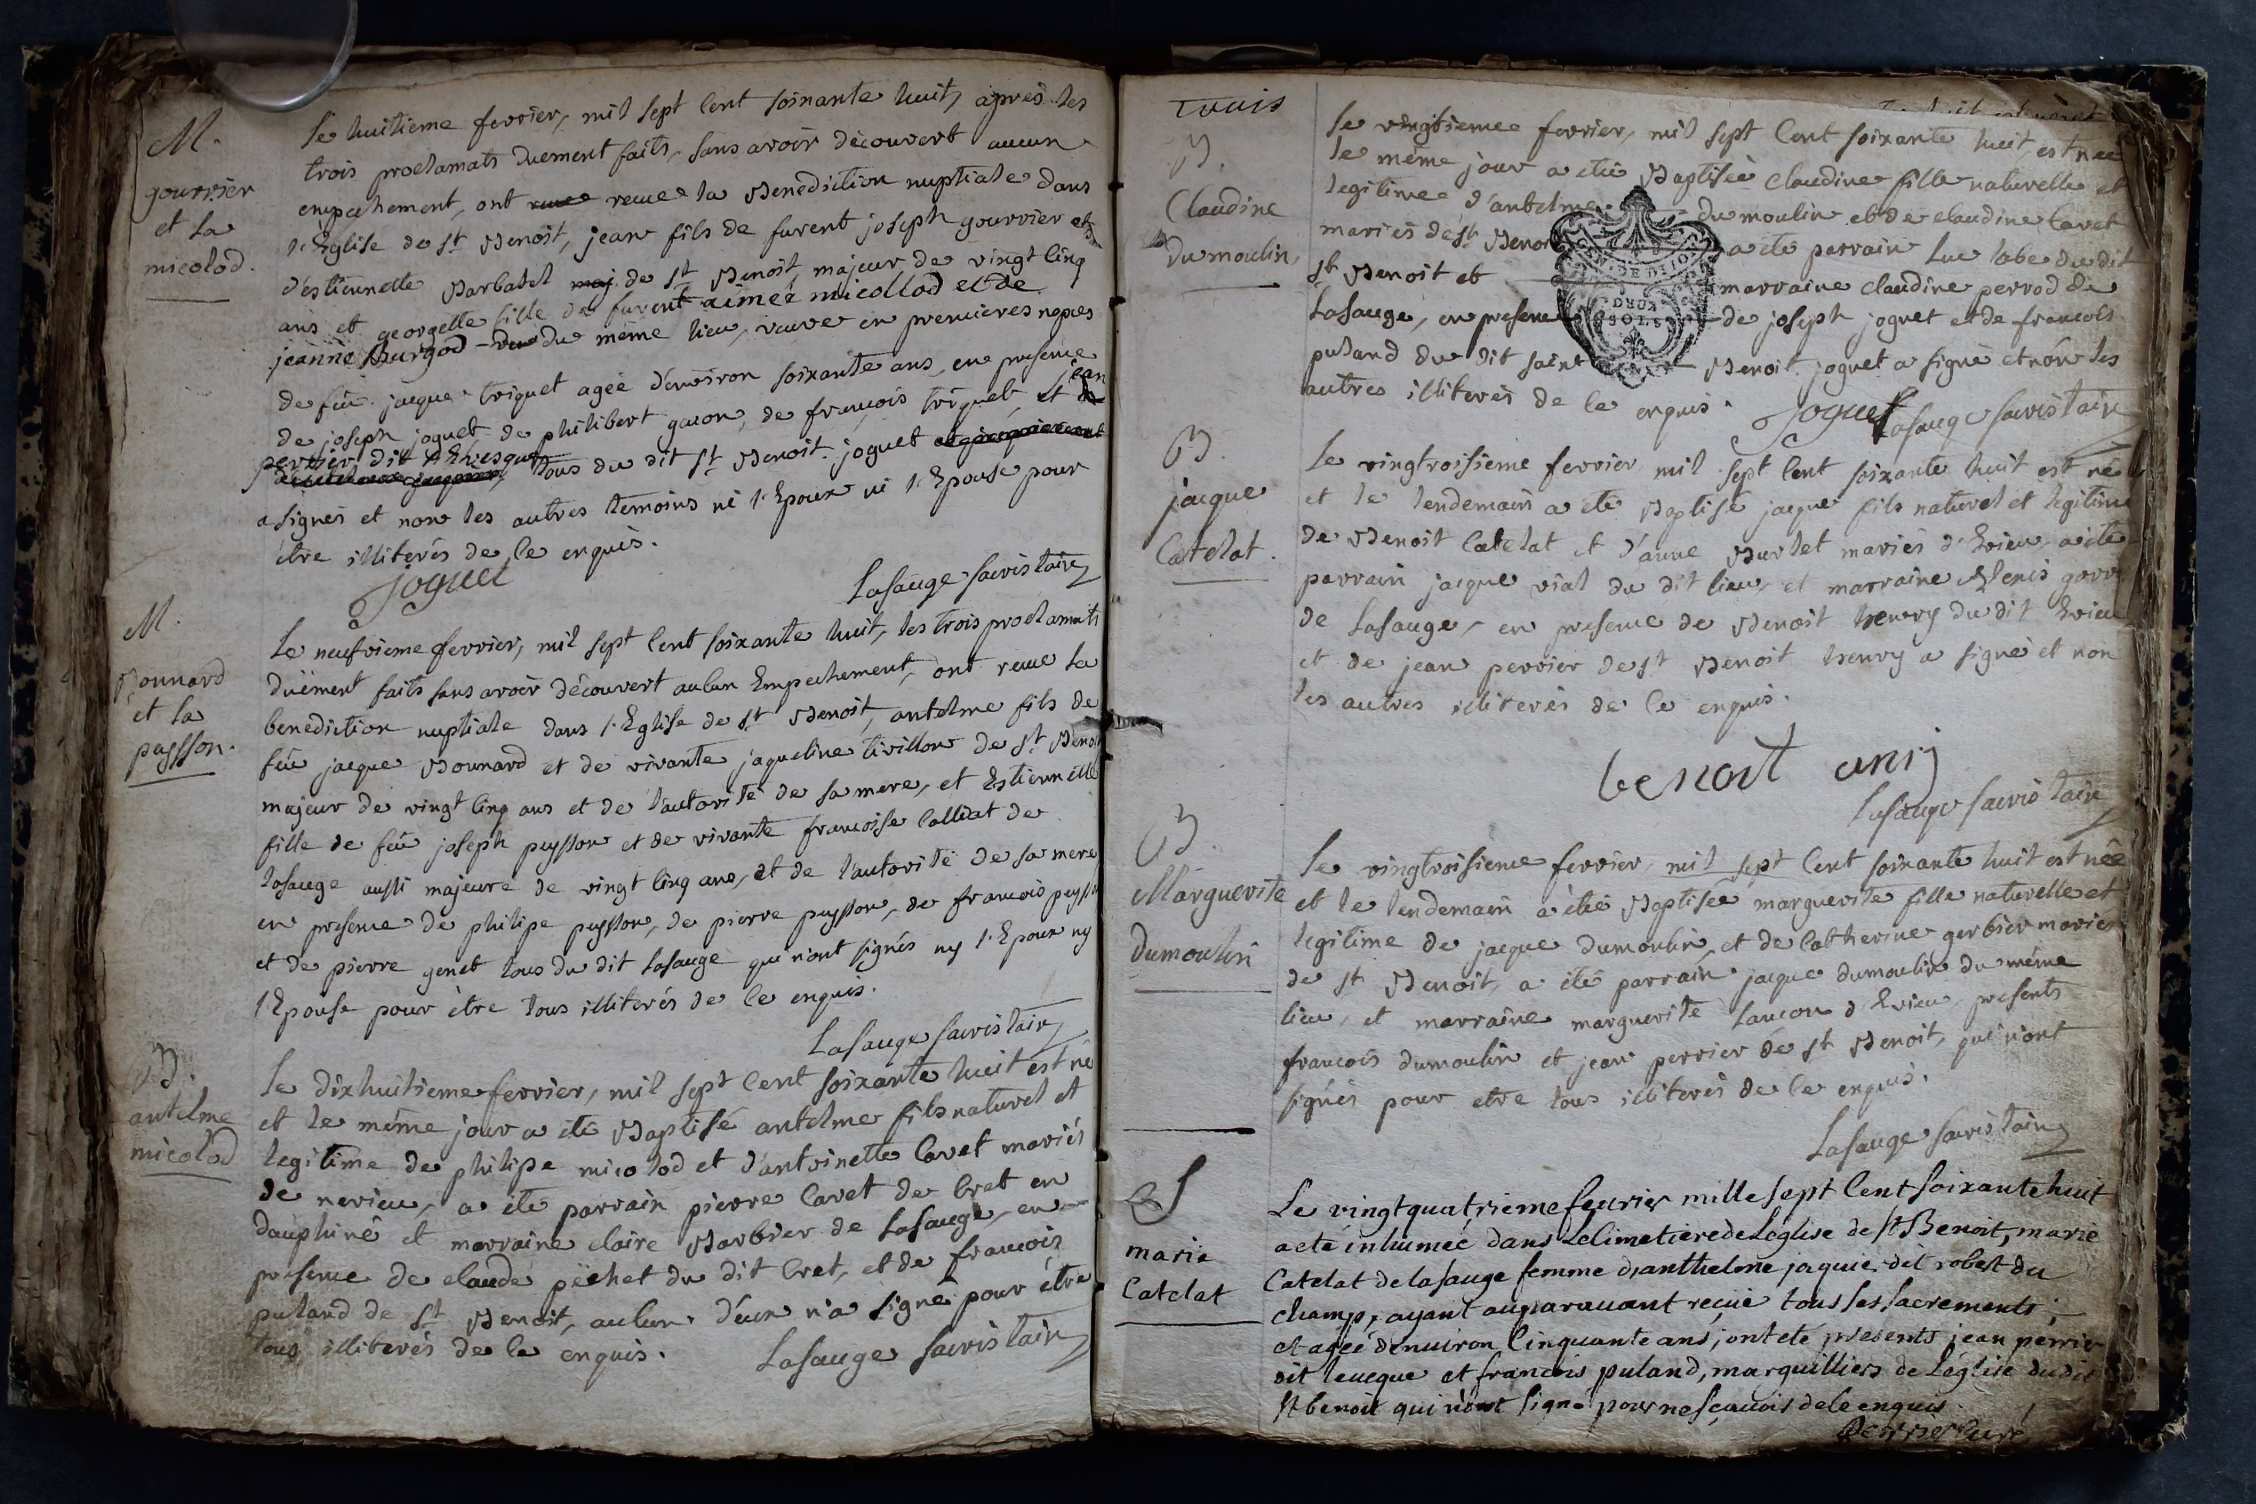 M.
gourrier
et la
micolod.
Le huitieme fevrier, mil sept Cent soixante huit, apres les
trois proclamats duement faits, sans avoir découvert aucun
empechement, ont receue la Benediction nuptiale dans
l'Eglise de st Benoit, jean fils de furent joseph gourrier et
d'estiennette Barbatel de st Benoit, majeur de vingt Cinq
ans et georgette fille de furent aimée micollod et de
jeanne Burgod du même lieu, veuve en premieres nopces
de feu jacque triquet agée d'environ soixante ans, en presence
de joseph joguet, de philibert gacon, de françois triquet, et jean
perrier dit l'Evesque tous du dit st Benoit. joguet
a signés et non les autres temoins ni l'Epoux ni l'Epouse pour
être illiterés de ce enquis.
Joguet
Lasauge sacristain
M.
Bonnard
et la
puysson.
Le neufvieme fevrier, mil sept Cent soixante huit, les trois proclamats
duëment faits sans avoir découvert aucun Empechement, ont receue la
benediction nuptiale dans l'Eglise de st Benoit, antelme fils de
feu jacque Bonnard et de vivante jaqueline tivillon de st Benoit
majeur de vingt Cinq ans et de l'autorité de sa mere, et Estiennette
fille de feu joseph puysson et de vivante francoise Callidat de
Lasauge aussi majeure de vingt Cinq ans, et de l'autorité de sa mere
en presence de philipe puysson, de pierre puysson, de francois puysson
et de pierre genet tous du dit Lasauge qui n'ont signés ny l'Epoux ny
l'Epouse pour être tous illiterés de ce enquis.
Lasauge sacristain
B.
antelme
micolod
Le dixhuitieme fevrier, mil sept Cent soixante huit est né
et le même jour a été Baptisé antelme fils naturel et
legitime de philipe micolod et d'antoinette Cavet mariés
de nerieu, a été parrain pierre Cavet de Cret en
dauphiné et marraine claire Barbier de Lasauge, en
presence de claude pèchet du dit Cret, et de francois
puland de st Benoit, aucun d'eux n'a signé pour être
tous illiterés de ce enquis.
Lasauge sacristain
trois
B.
Claudine
Dumoulin
Le vingtieme fevrier, mil sept Cent soixante huit, est née
le même jour a étée Baptisée claudine fille naturelle et
legitime d'antelme dumoulin et de claudine Cavet
mariés de st Benoit a été parrain Luc labe du dit
st Benoit et marraine claudine perrod de
Lasauge, en presence de joseph joguet et de francois
puland du dit saint Benoit. joguet a signé et non les
autres illiterés de ce enquis.
Joguet
Lasauge sacristain
DEUX
SOLS
B.
jacque
Catelat.
Le vingtroisieme fevrier mil sept Cent soixante huit est né
et le lendemain a été Baptisé jacque fils naturel et legitime
de Benoit Catelat et d'anne Burlet mariés d'Evieu, a été
parrain jacque vial du dit lieu, et marraine
de Lasauge, en presence de Benoit henry du dit Evieu
et de jean perrier de st Benoit henry a signé et non
les autres illiterés de ce enquis.
benoit anrj
Lasauge sacristain
B.
Marguerite
Dumoulin
Le vingtroisieme fevrier, mil sept Cent soixante huit est née
et le lendemain a étée Baptisée marguerite fille naturelle et
legitime de jacque dumoulin, et de Catherine gerbier mariés
de st Benoit, a été parrain jacque dumoulin du même
lieu, et marraine marguerite Lancon d'Evieu, presents
francois dumoulin et jean perrier de st Benoit, qui n'ont
signés pour etre tous illiterés de ce enquis.
Lasauge sacristain
S
marie
Catelat
Le vingtquatrieme feurier mille sept Cent soixante huit
a eté inhumée dans Le Cimetiere de Léglise de st Benoit, marie
Catelat de lasauge femme d'anthelme jaquier dit robest du
champ, ayant auparavant reçuë tous ses sacrements;
et agée d'enuiron Cinquante ans; ont eté presents jean perrier
dit leueque et francois puland, marguilliers de Léglise dudit
st benoit qui n'ont signé pour ne sçauoir de ce enquis.
Perrier Curé